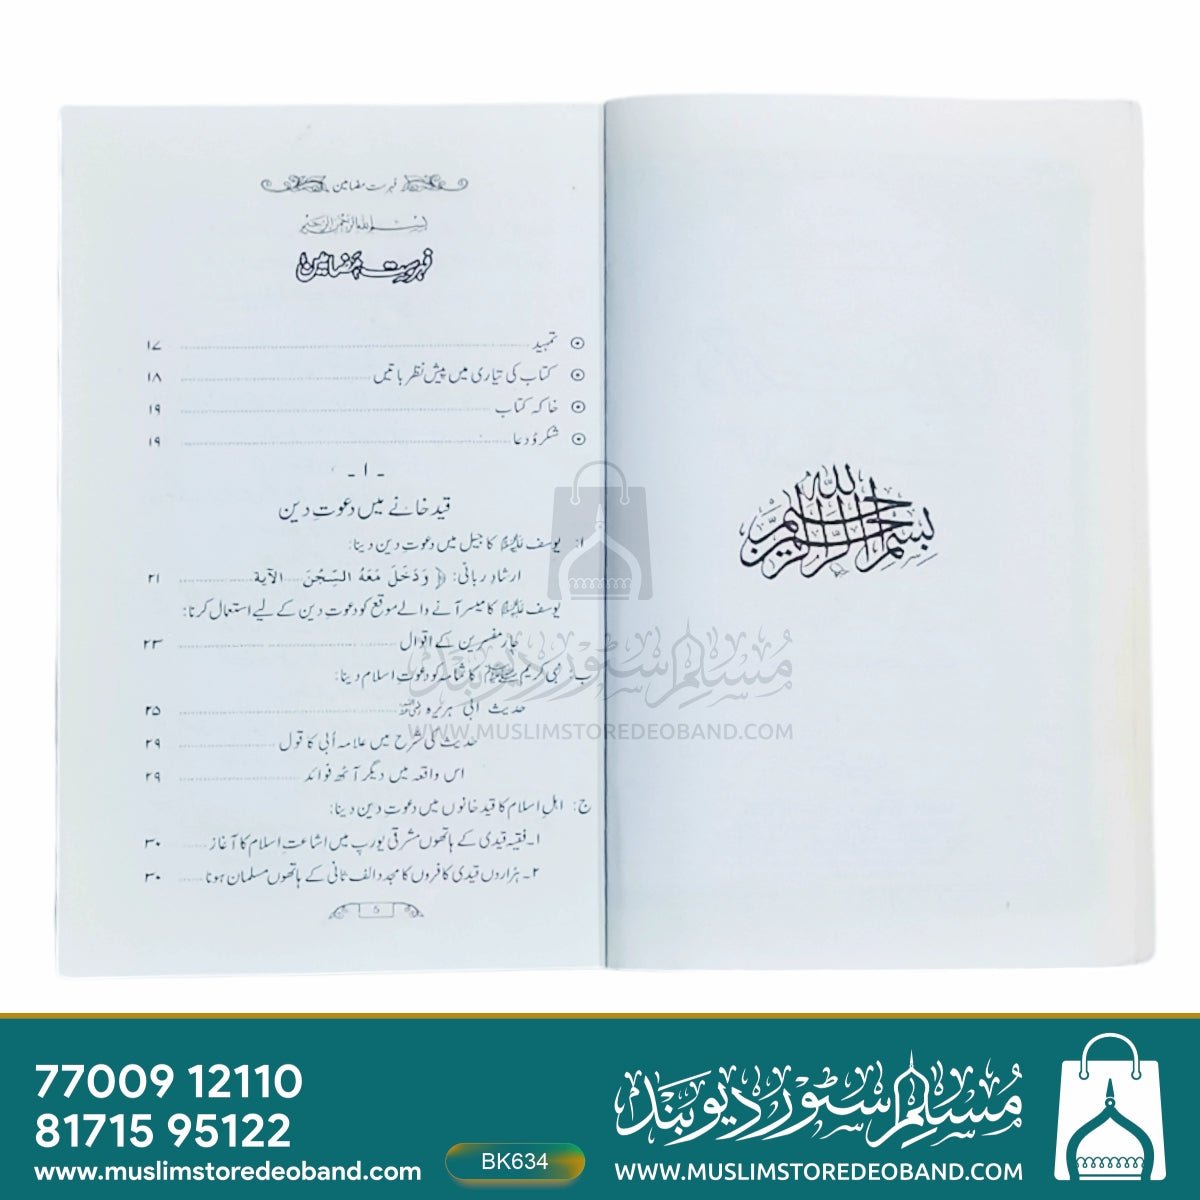 بِسْمِ اللّٰهِ الرَّحْمٰنِ الرَّحِيْمِ
فہرست مضامین
بِسْمِ اللّٰهِ الرَّحْمٰنِ الرَّحِيْمِ
فہرست مضامین
⊙ تمہید ۱۷
⊙ کتاب کی تیاری میں پیش نظر باتیں ۱۸
⊙ خاکہ کتاب ۱۹
⊙ شکر و دعا ۱۹
۔ ۱ ۔
قید خانے میں دعوتِ دین
ا: یوسف علیہ السلام کا جیل میں دعوتِ دین دینا:
ارشادِ ربانی: ﴿ وَدَخَلَ مَعَهُ السِّجْنَ ..... الآية ۲۱
یوسف علیہ السلام کا میسر آنے والے موقع کو دعوتِ دین کے لیے استعمال کرنا:
مفسرین کے اقوال ۲۳
ب: نبی کریم ﷺ کا ثمامہ کو دعوتِ اسلام دینا:
حدیث ابی ہریرہ رضی اللہ عنہ ۲۵
حدیث کی شرح میں علامہ اُبی کا قول ۲۹
اس واقعہ میں دیگر آٹھ فوائد ۲۹
ج: اہلِ اسلام کا قید خانوں میں دعوتِ دین دینا:
۱۔ فقیہ قیدی کے ہاتھوں مشرقی یورپ میں اشاعتِ اسلام کا آغاز ۳۰
۲۔ ہزاروں قیدی کافروں کا مجدد الف ثانی کے ہاتھوں مسلمان ہونا ۳۰
5
مسلم سٹور دیوبند
WWW.MUSLIMSTOREDEOBAND.COM
77009 12110
81715 95122
www.muslimstoredeoband.com
BK634
مسلم سٹور دیوبند
WWW.MUSLIMSTOREDEOBAND.COM